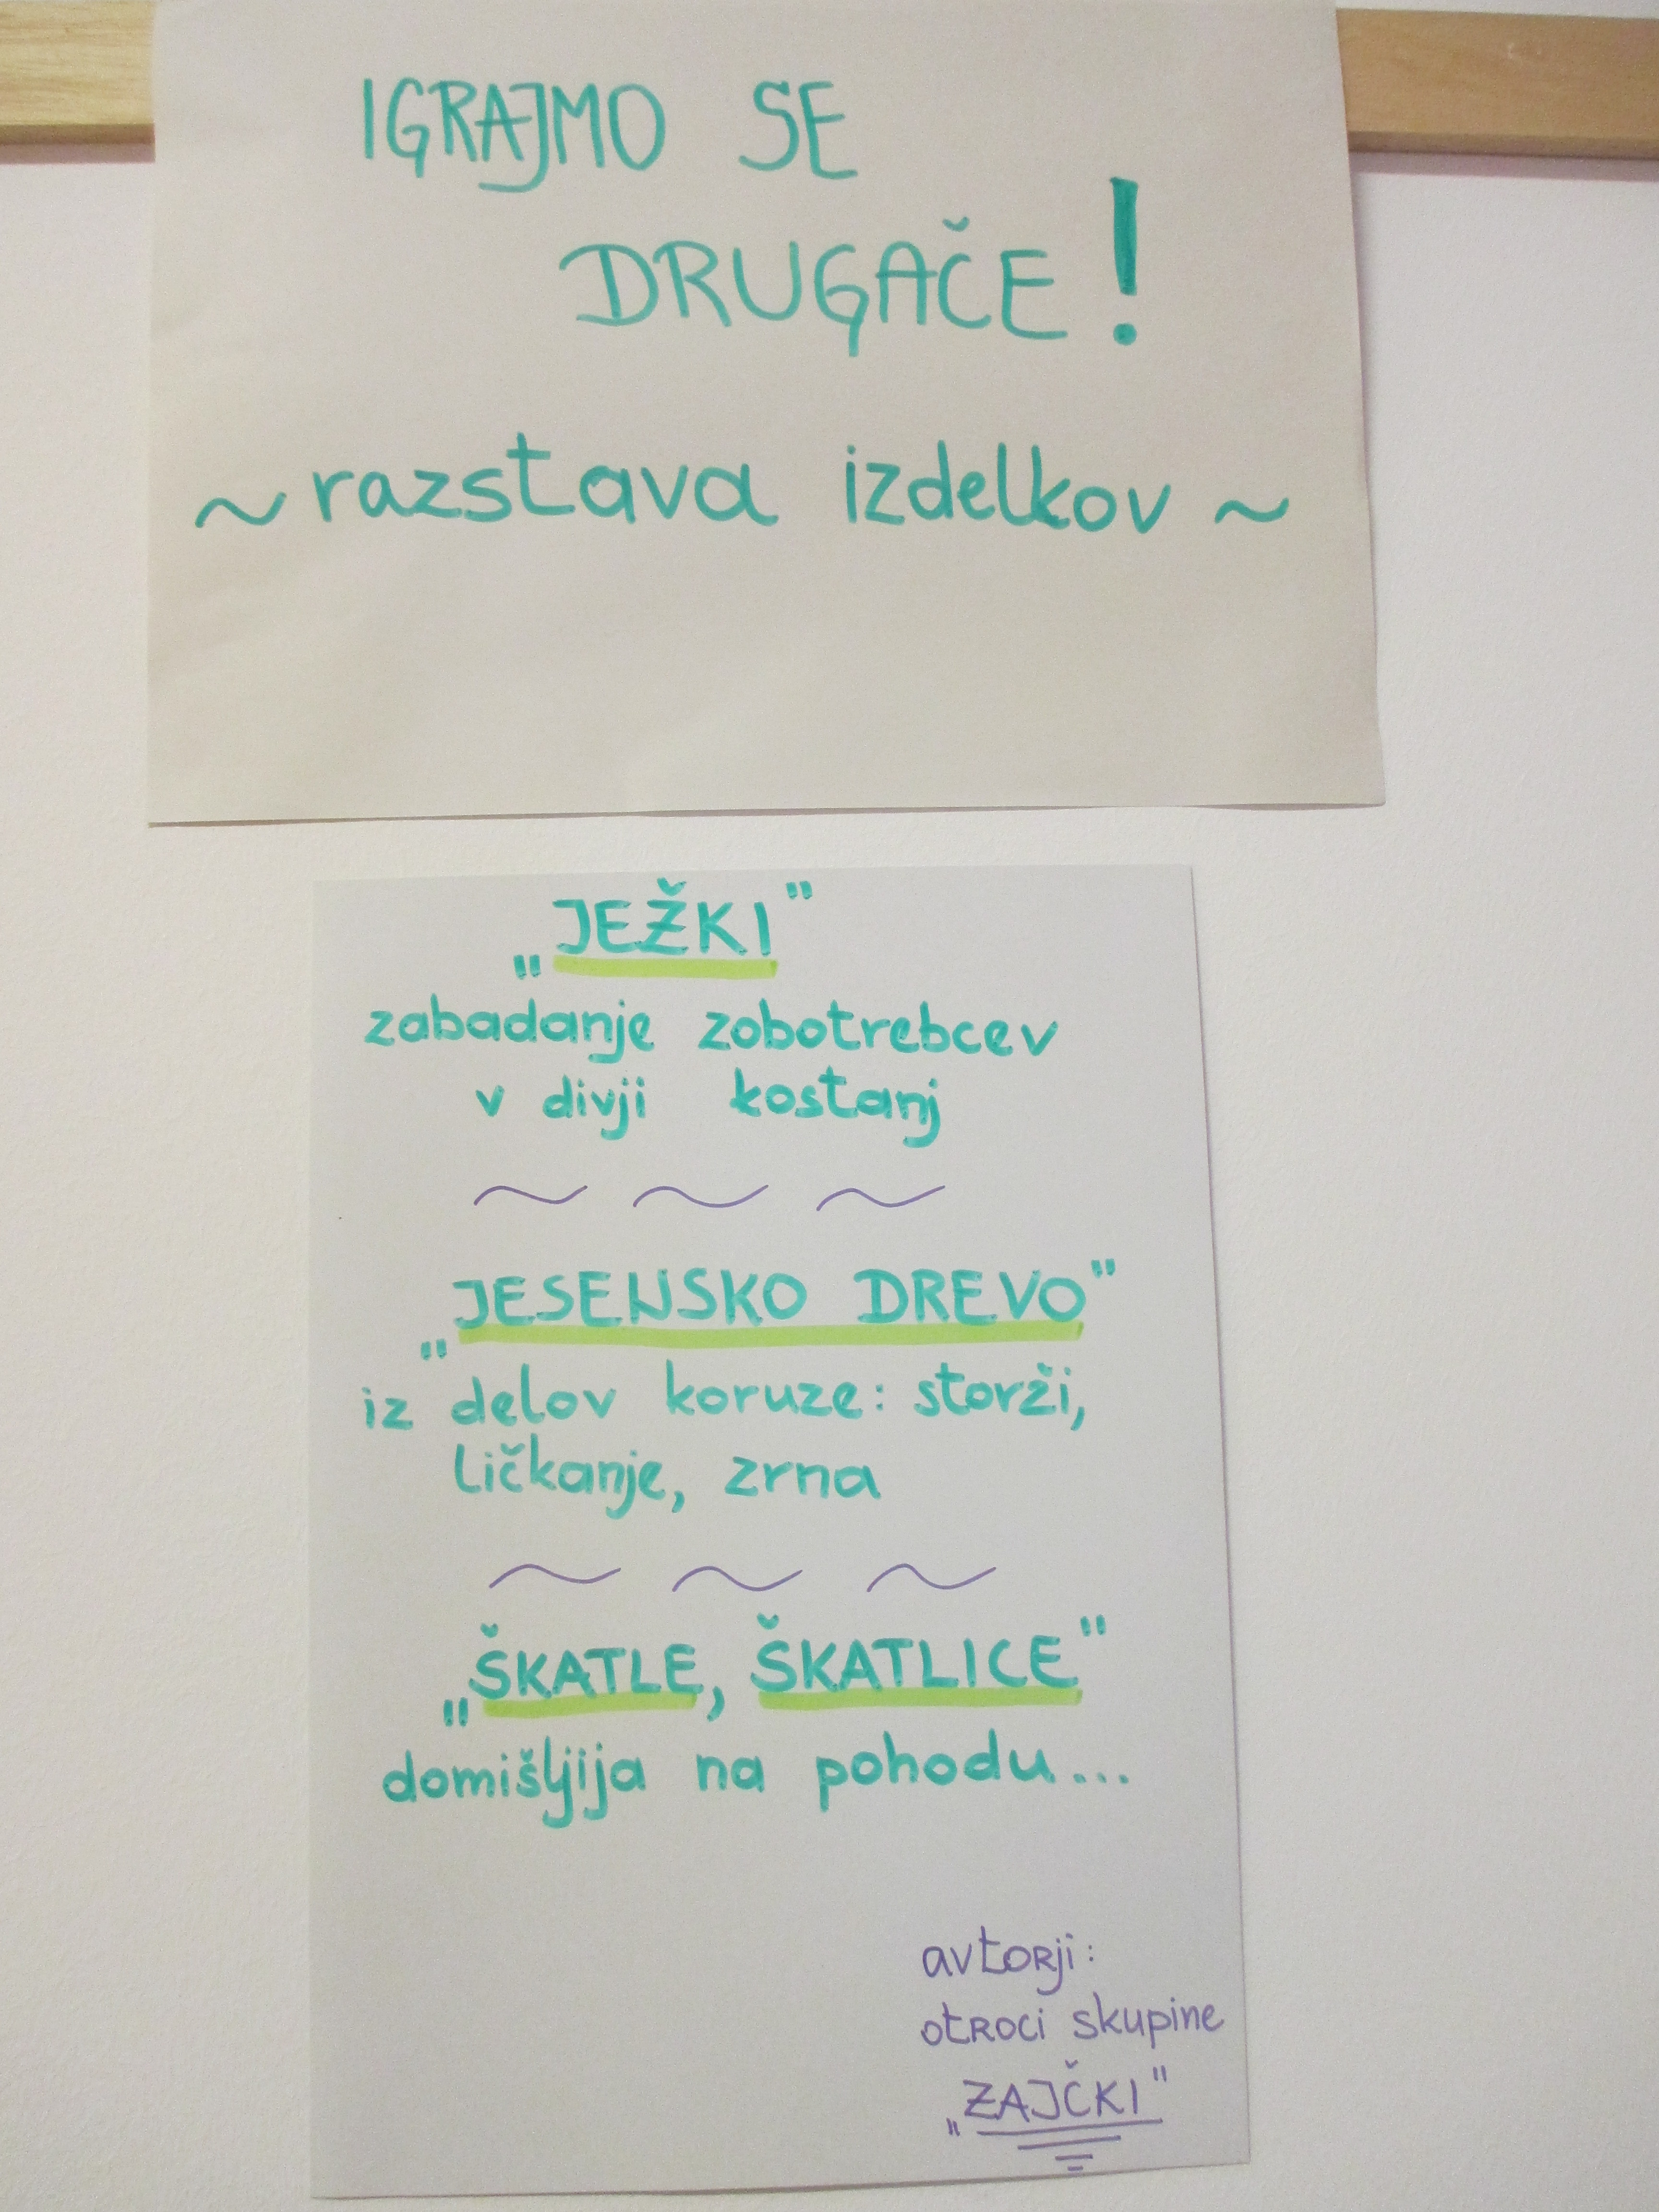 IGRAJMO SE
DRUGAČE!
~ razstava izdelkov ~
„JEŽKI"
zabadanje zobotrebcev
v divji kostanj
~ ~ ~
„JESENSKO DREVO"
iz delov koruze: storži,
ličkanje, zrna
~ ~ ~
„ŠKATLE, ŠKATLICE"
domišljija na pohodu...
avtorji:
otroci skupine
„ZAJČKI"